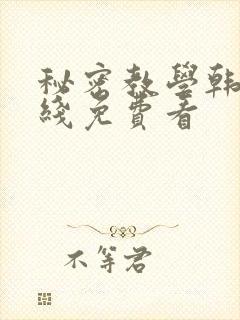 秘密教學韩
綫免費看
不等君